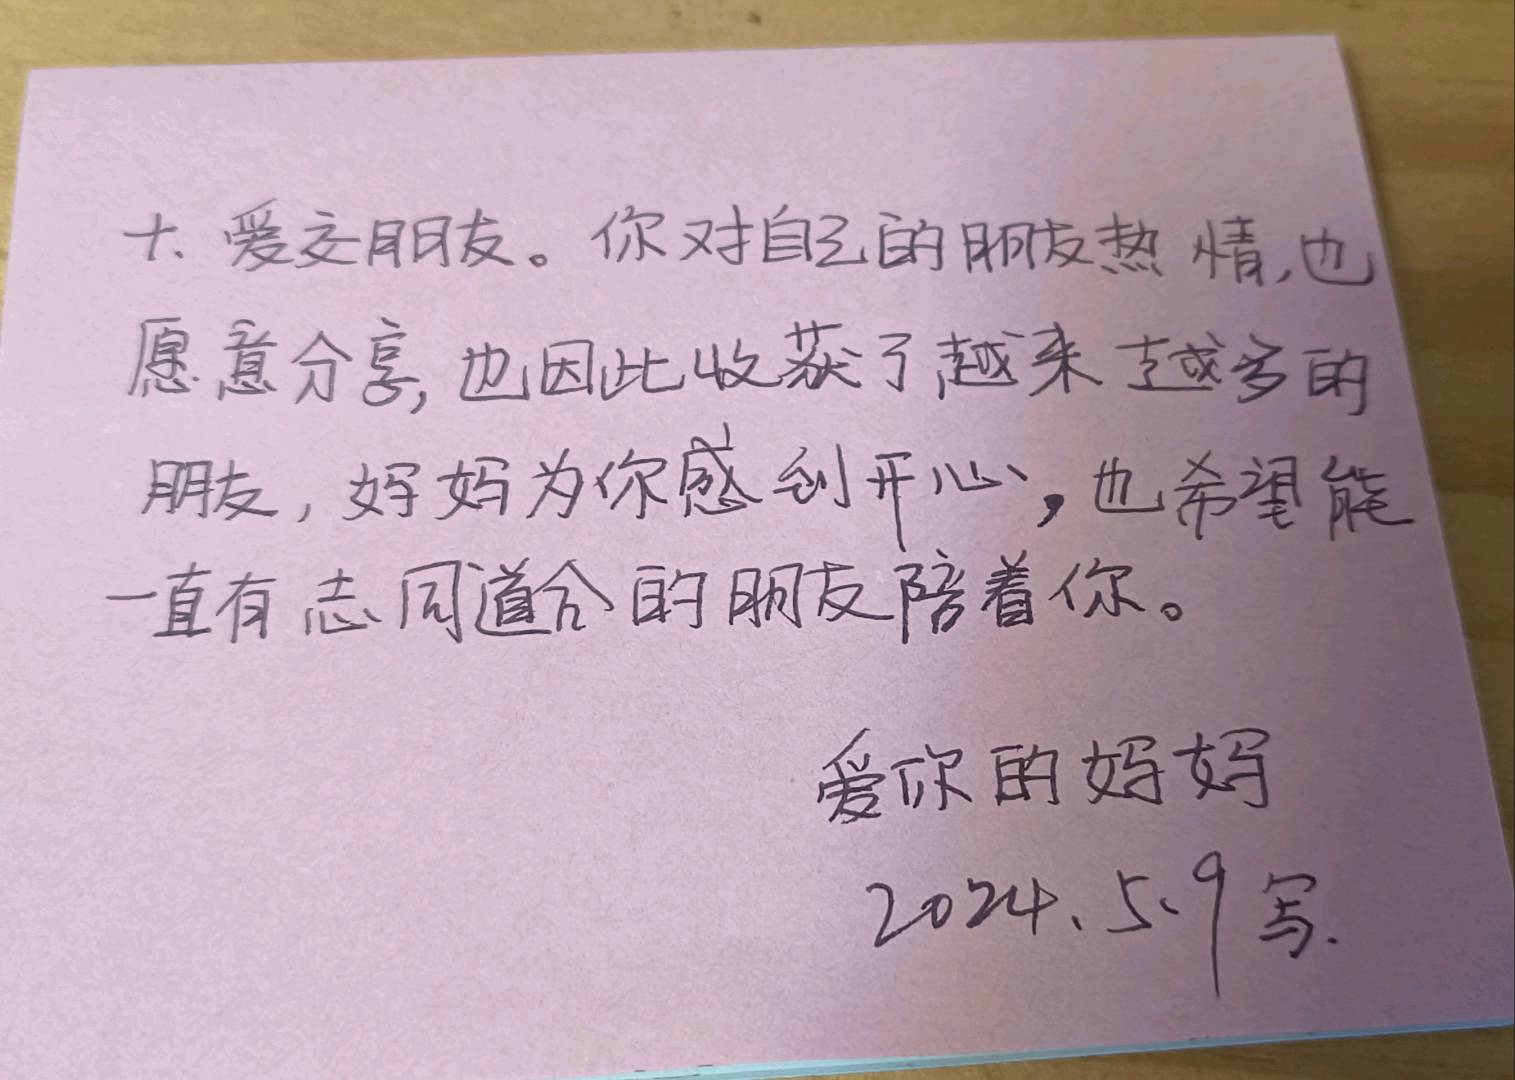 十、爱交朋友。你对自己的朋友热情,也
愿意分享,也因此收获了越来越多的
朋友,妈妈为你感到开心,也希望能
一直有志同道合的朋友陪着你。
爱你的妈妈
2024.5.9写.